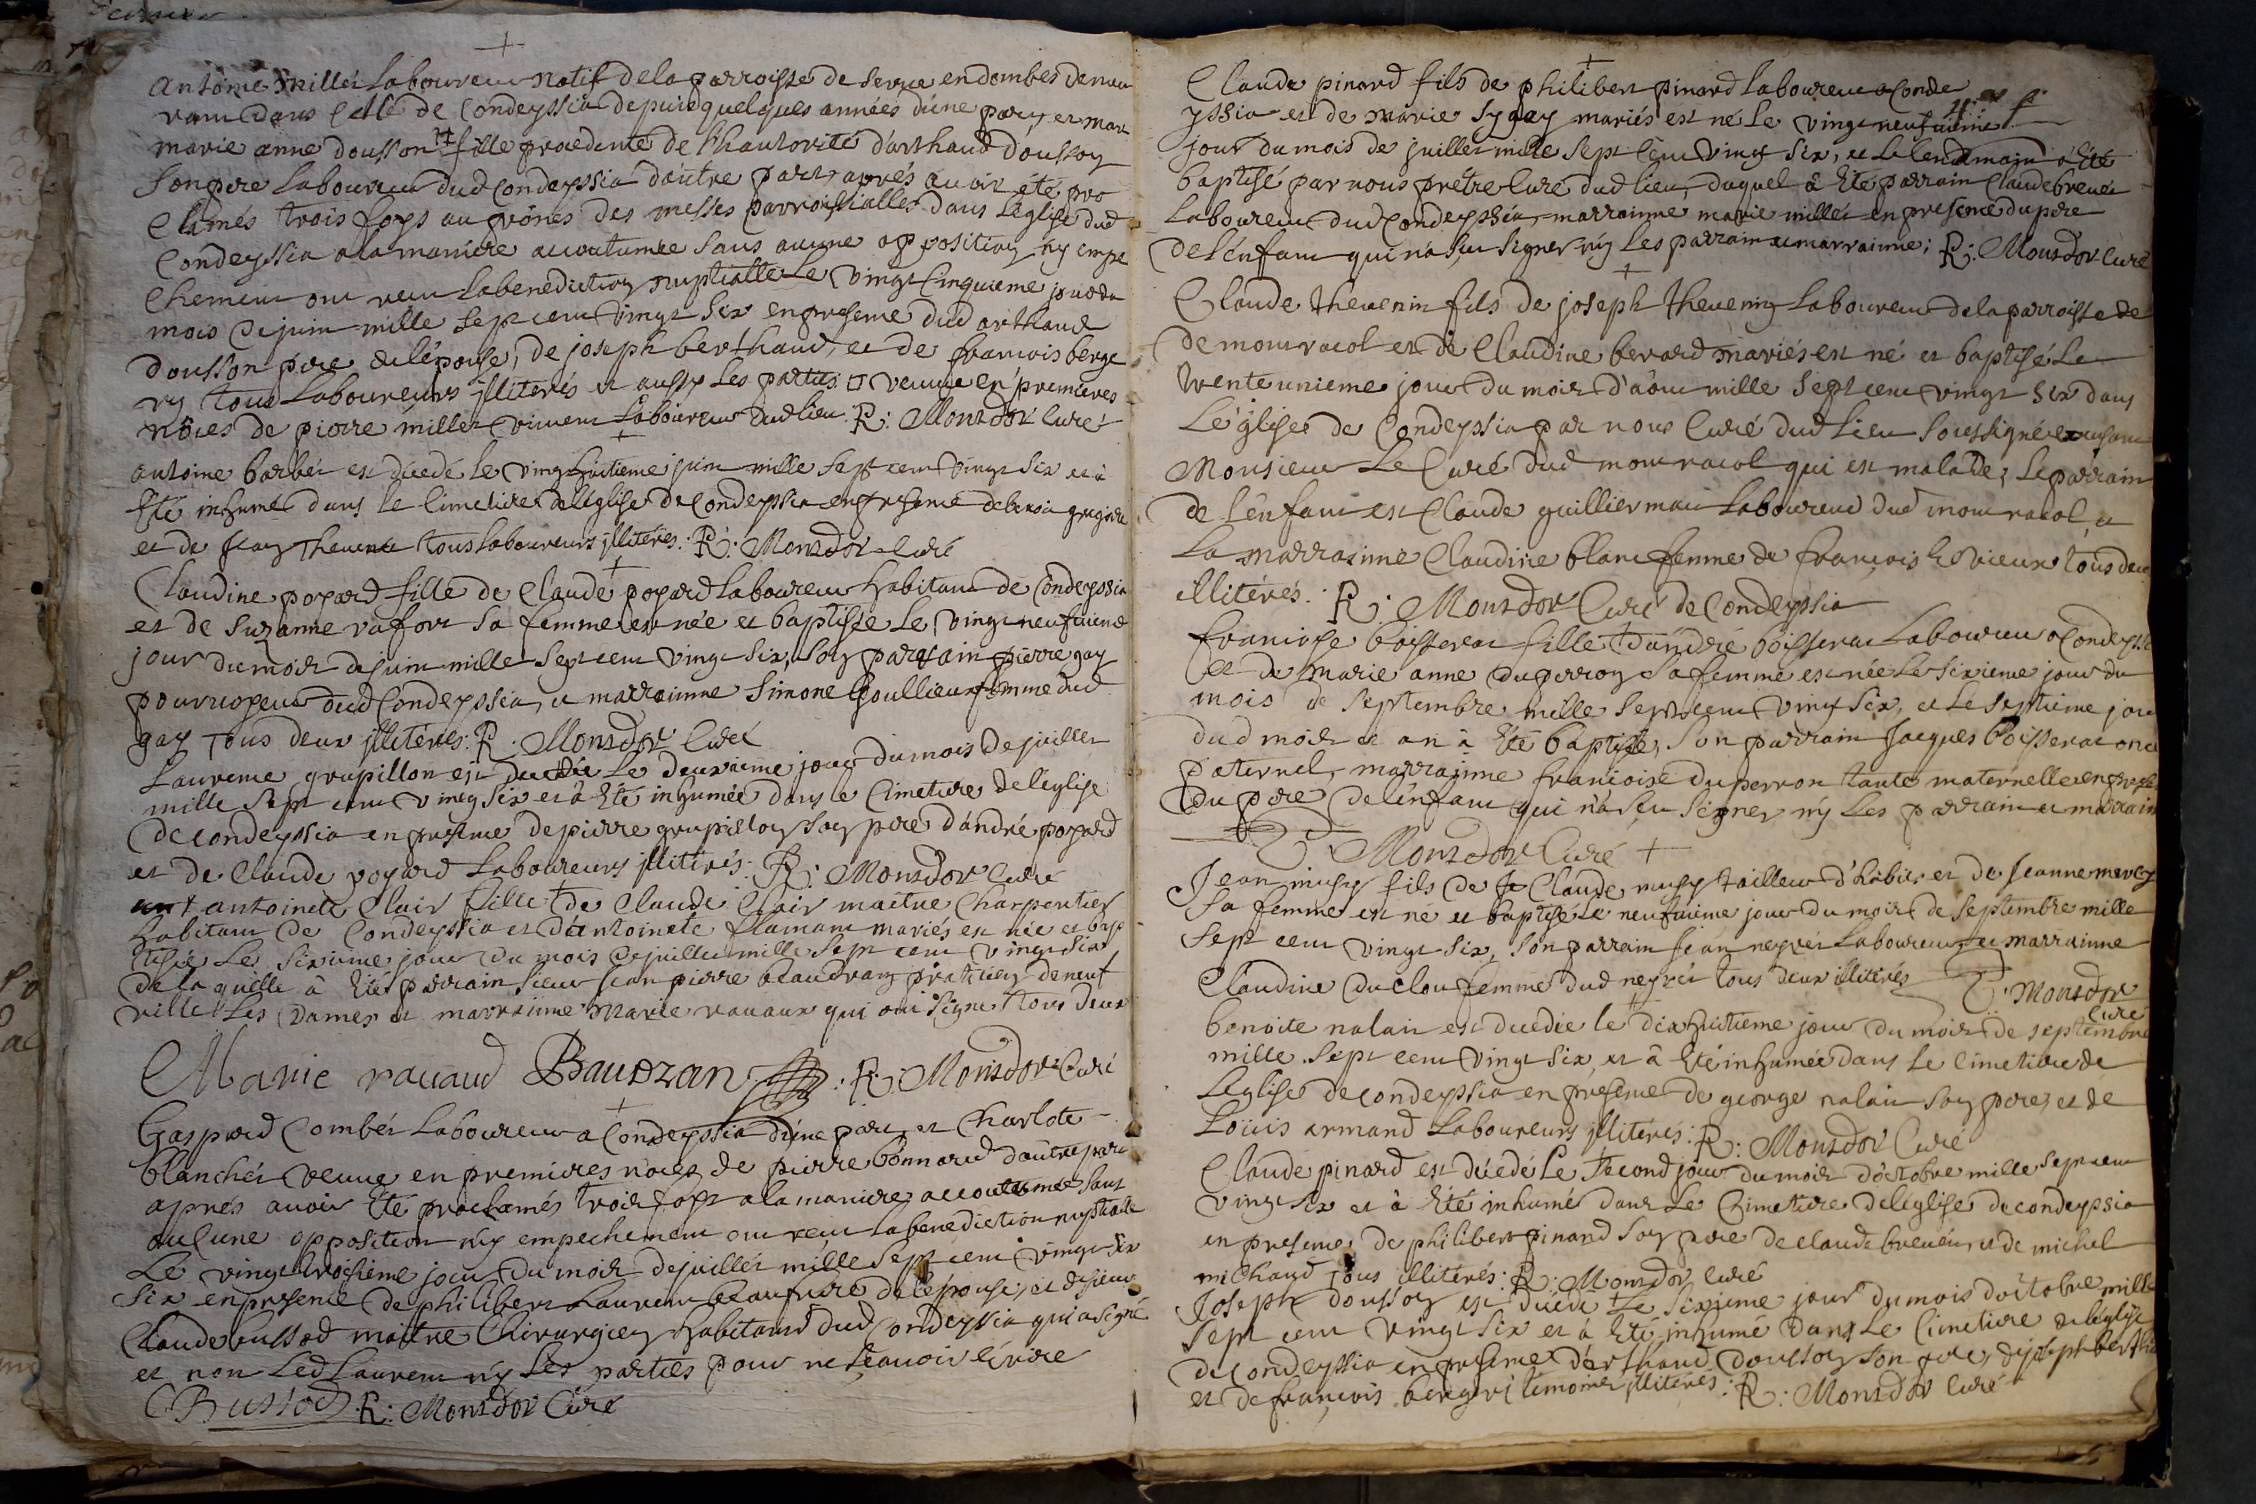 antoine millet Laboureur natif de la parroisse de Servce en dombes demeu
rant dans Celle de Condeyssia depuis quelques années d'une part, et mar
marie anne dousson fille procedente de L'hautorité d'arthaud Doussoy
Son pere Laboureur dud Condeyssia d'autre part, aprés avoir été pro
Clamés trois foys au prônes des messes parroissialles dans L'église dud
Condeyssia a la maniere accoutumée sans aucune oppositioy ny empe
chement ont receu La benedictioy nuptialle Le vingt Cinquieme jour du
mois de juin mille Sept cent vingt Six en presence dud arthaud
dousson pere de l'épouse, de joseph berthaud, et de francois berge
ry tous Laboureurs jlliterés et aussy Les parties veuve en premieres
nôces de pierre millet vivent Laboureur dud lieu. R: Monsdor Curé
antoine barbet est décedé Le vingthuitieme juin mille Sept cent vingt Six et à
Eté inhumé dans Le Cimetiere de L'église de Condeyssia en presence de benoit gregoire
et de Jeay thevenet tous Laboureurs jlliterés: R: Monsdor Curé
Claudine poyard fille de Claude poyard Laboureur habitant de Condeyssia
et de Suzanne vafort Sa femme est née et baptisée Le vingt neufvieme
jour du mois de juin mille Sept cent vingt Six, Soy parrain pierre gay
pourvoyeur dud Condeyssia, et marrainne Simone Goullieux femme dud
gay Tous deux jlliterés: R. Monsdor Curé
Laurence grupillon est decedée Le deuxieme jour du mois de juillet
mille Sept cent vingt Six et à Eté inhumée dans Le Cimetiere de l'église
de Condeyssia en presence de pierre grupilloy Soy pere d'andré poyard
et de Claude poyard Laboureurs jlliterés: R: Monsdor Curé
antoinete Clair fille de Claude Clair maitre Charpentier
habitant de Condeyssia et d'antoinete flamant mariés est née et bap
tisée Le Sixieme jour du mois de juillet mille Sept cent vingt Six
de laquelle à Eté parrain Sieur Jean pierre beaudray praticiey de neuf
ville Les Dames et marrainne Marie ravaux qui ont Signé tous deux
Marie ravaud Baudran: R: Monsdor Curé
Gaspard Combet Laboureur a Condeyssia d'une part et Charlote
blanchet veuve en premieres nôces de pierre bonnard d'autre part
aprés avoir Eté proclamés trois foys a la maniere accoutumée Sans
aulcune opposition ny empechement ont receu La benediction nuptialle
Le vingt troisieme jour du mois de juillet mille Sept cent vingt Six
Six en presence de philibert Laurent beaufrere de l'épouse, et de Sieur
Claude bussod maitre Chirurgiey habitant dud Condeyssia qui a Signé
et non Led Laurent ny Les parties pour ne Sçavoir écrire
Bussod R: Monsdor Curé
Claude pinard fils de philibert pinard Laboureur a Conde
yssia et de marie Sygay mariés est né Le vingt neufvieme
jour du mois de juillet mille Sept Cent vingt Six, et Le Lendemain à Eté
baptisé par nous prétre Curé dud lieu, duquel à Eté parrain Claude brevet
Laboureur dud Condeyssia, marrainne marie millet en presence du pere
de L'énfant qui n'a Sçu Signer ny Les parrain et marrainne; R: Monsdor Curé
Claude thevenin fils de joseph theveniy Laboureur de la parroisse de
de montracol et de Claudine berard mariés est né et baptisé Le
trente unieme jour du mois d'aôut mille Sept cent vingt Six dans
L'église de Condeyssia par nous Curé dud Lieu Soussigné excusant
Monsieur Le Curé dud montracol qui est malade, Le parrain
de L'énfant est Claude guilliermain Laboureur dud montracol et
La marrainne Claudine blanc femme de francois tous deux
illitérés: R: Monsdor Curé de Condeyssia
francoise boisserat fille d'andré boisserat Laboureur a Condeyssia
et de Marie anne duperroy Sa femme est née Le Sixieme jour du
mois de Septembre mille Sept cent vingt Six, et Le Septieme jour
dud mois et an à Eté baptisée, Son parrain Jacques boisserat oncle
paternel, marrainne francoise duperron tante maternelle en presence
du pere de l'énfant qui n'a Sçu Signer ny Les parrain et marrain
Monsdor Curé
Jean musy fils de Claude musy tailleur d'habits et de Jeanne mercy
Sa femme est né et baptisé Le neufvieme jour du mois de Septembre mille
Sept cent vingt Six, Son parrain Jean neyret Laboureur et marrainne
Claudine duclou femme dud neyret tous deux illiterés Monsdor
Curé
benoite nalait est decedée Le Dixhuitieme jour du mois de Septembre
mille Sept cent vingt Six, et à Eté inhumée dans Le Cimetiere de
L'église de Condeyssia en presence de george nalait Soy pere, et de
Louis armand Laboureurs jlliterés: R: Monsdor Curé
Claude pinard est décedé Le Second jour du mois d'octobre mille Sept cent
vingt Six et à Eté inhumé dans Le Cimetiere de l'église de Condeyssia
en presence de philibert pinard Soy pere de Claude brevet, et de michel
michaud Tous illitérés: R: Monsdor Curé
Joseph doussoy est décedé Le Sixieme jour du mois d'octobre mille
Sept cent vingt Six et à Eté inhumé dans Le Cimetiere de l'église
de Condeyssia en presence d'arthaud doussoy Son pere, de joseph bertha
et de francois bergeri temoins jlliterés: R: Monsdor Curé